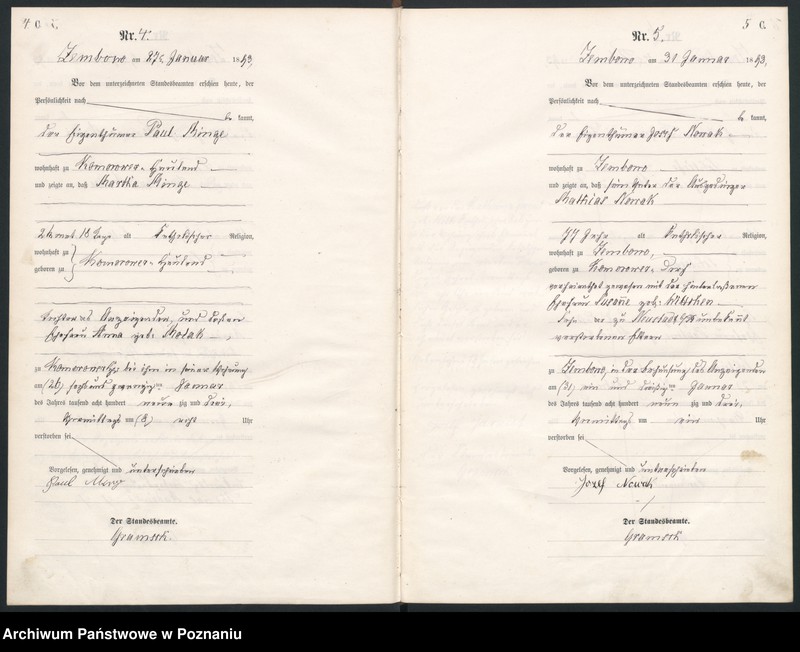 4 C.
Nr. 4.
Zembowo am 27t Januar 1893.
Vor dem unterzeichneten Standesbeamten erschien heute, der
Persönlichkeit nach
be kannt,
der Eigenthümer Paul Minge
wohnhaft zu Komorower-Hauland
und zeigte an, daß Martha Minge
alt Katholischer Religion,
wohnhaft zu
geboren zu Komorower-Hauland
Tochter des Anzeigenden, und dessen
Ehefrau Anna geb.
zu bei ihm in seiner Wohnung
am (26) sechs und zwanzigten Januar
des Jahres tausend acht hundert neun zig und drei,
Vormittags um (8) acht Uhr
verstorben sei
Vorgelesen, genehmigt und unterschrieben
Paul
Der Standesbeamte.
5 C.
Nr. 5.
Zembowo am 31 Januar 1893.
Vor dem unterzeichneten Standesbeamten erschien heute, der
Persönlichkeit nach
be kannt,
der Eigenthümer Josef Nowak
wohnhaft zu Zembowo
und zeigte an, daß sein Vater der Auszedinger
Mathias Nowak
77 Jahr alt Katholischer Religion,
wohnhaft zu Zembowo,
geboren zu Komorower-Dorf
verheirathet gewesen mit der hinterlassenen
Ehefrau geb.
Sohn der zu Neustadt b/P unbekannt
verstorbenen Eltern
zu Zembowo, in der Behausung des Anzeigenden
am (31) ein und dreißigten Januar
des Jahres tausend acht hundert neun zig und drei,
Vormittags um ein Uhr
verstorben sei
Vorgelesen, genehmigt und unterschrieben
Jozef Nowak
Der Standesbeamte.
Archiwum Państwowe w Poznaniu